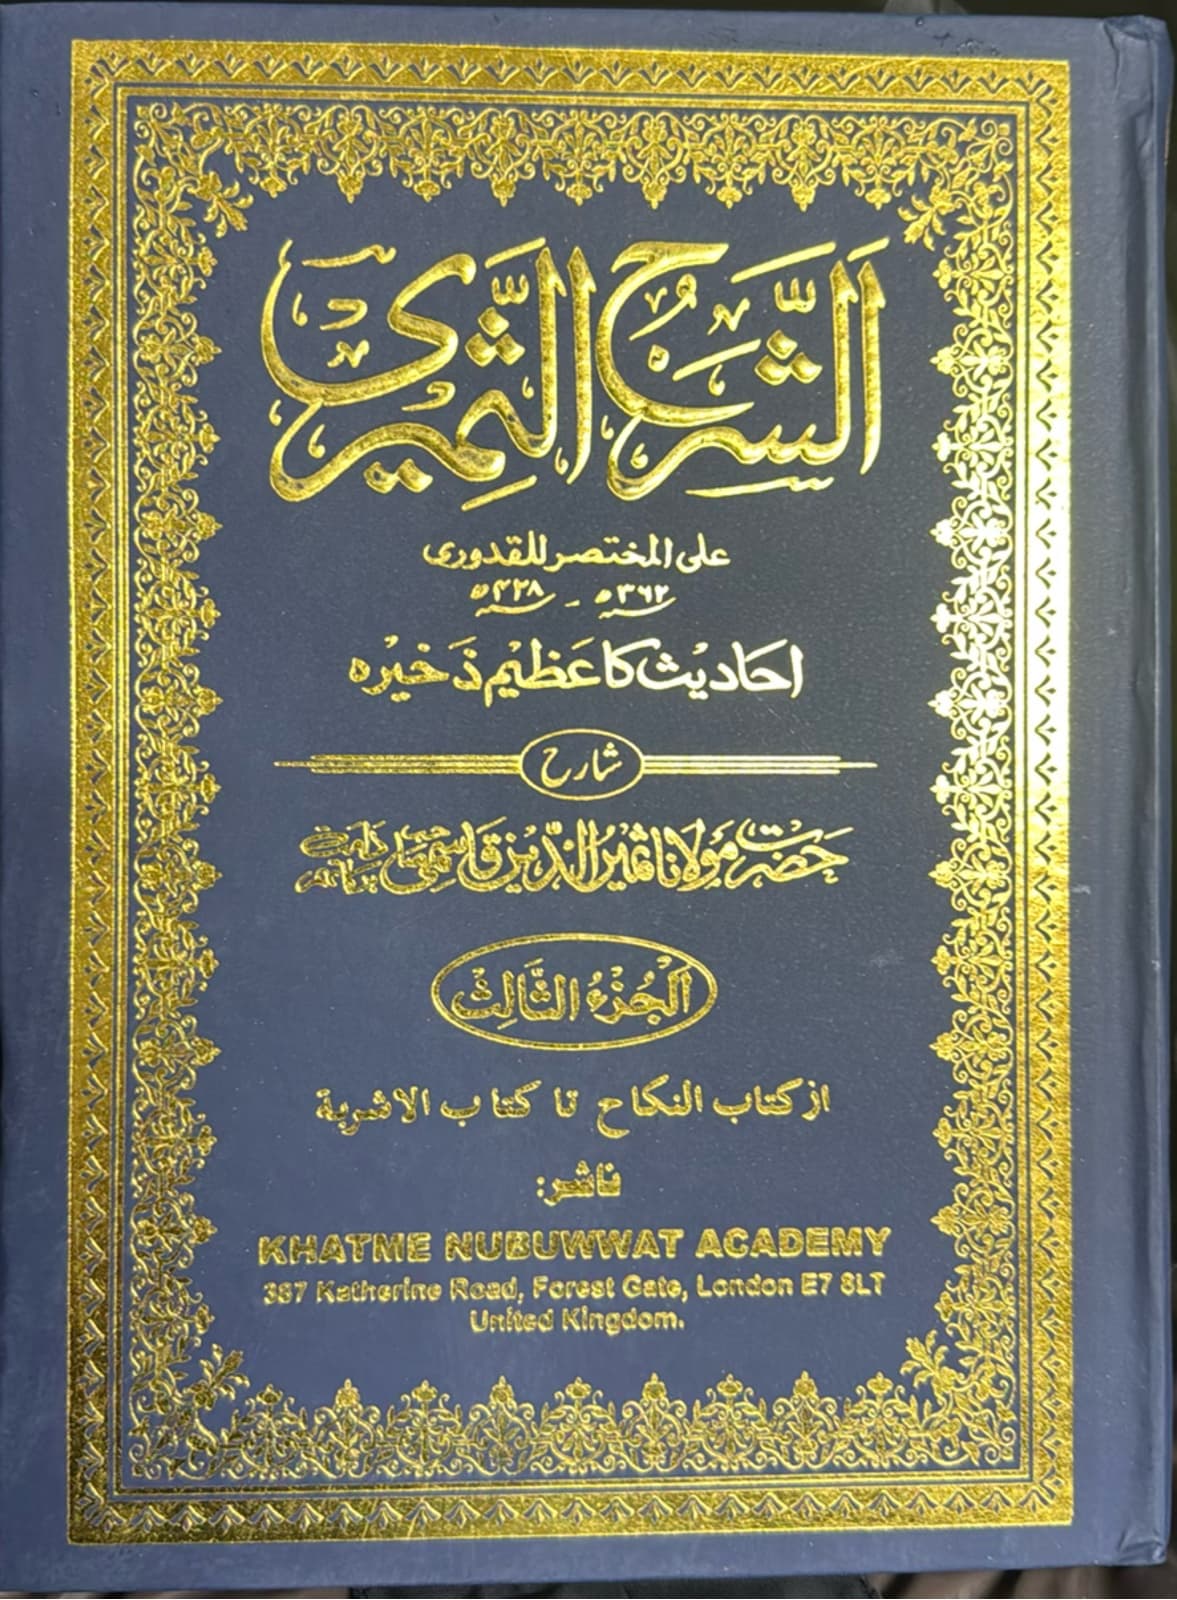 اَلشَّرْحُ الثَّمِیْرِی
علی المختصر للقدوری
۳۶۲ھ - ۴۲۸ھ
احادیث کا عظیم ذخیرہ
شارح
حضرت مولانا ثمیر الدین قاسمی صاحب دامت برکاتہم
اَلْجُزْءُ الثَّالِثْ
از کتاب النکاح تا کتاب الاشربة
ناشر:
KHATME NUBUWWAT ACADEMY
387 Katherine Road, Forest Gate, London E7 8LT
United Kingdom.